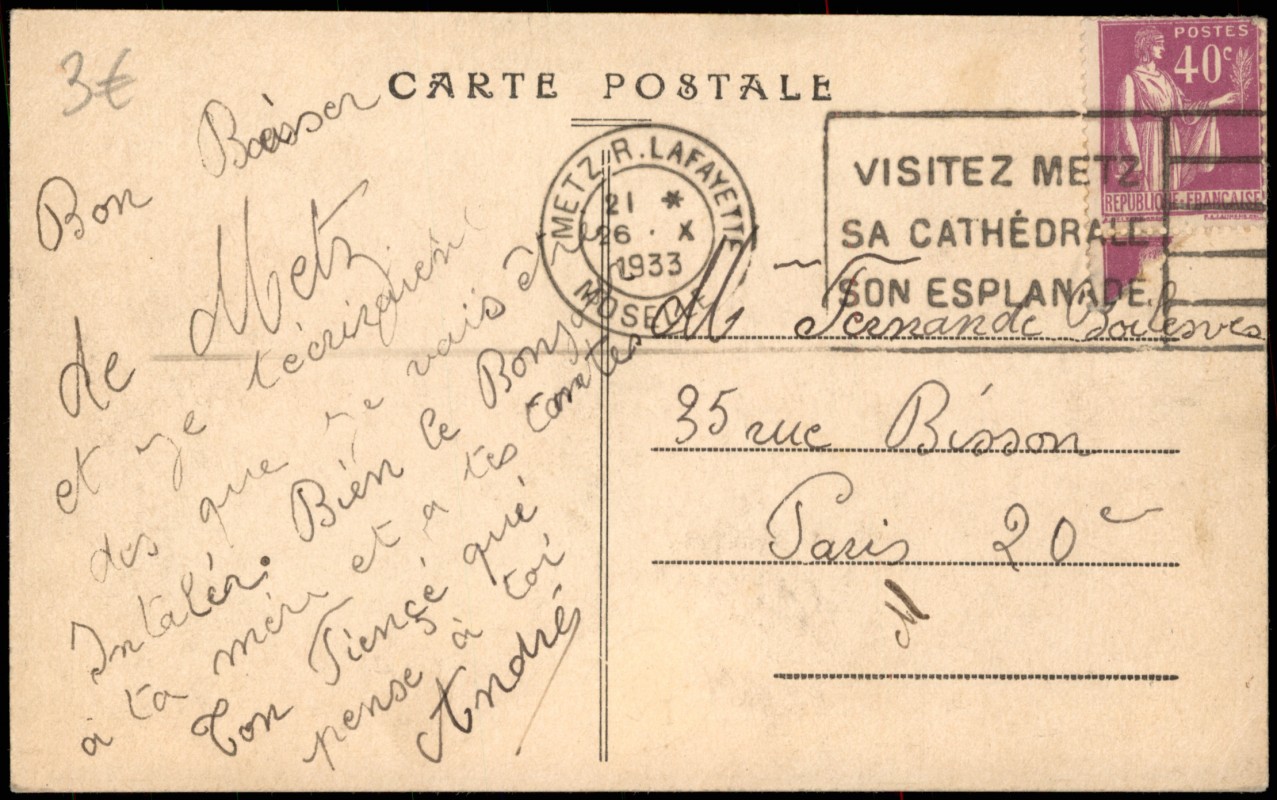 3€
CARTE POSTALE
POSTES
40c
REPUBLIQUE FRANÇAISE
METZ R. LAFAYETTE
21 *
26 . X
1933
MOSELLE
VISITEZ METZ
SA CATHÉDRALE
SON ESPLANADE
Bon Baisser
de Metz
et je técrizquen
des que je vais ê
Intalér. Bién le Bonj
à ta mére et a tes tantes
Ton Fiencé qué
pense à toi
André
M Fernande
35 rue Bisson
Paris 20e